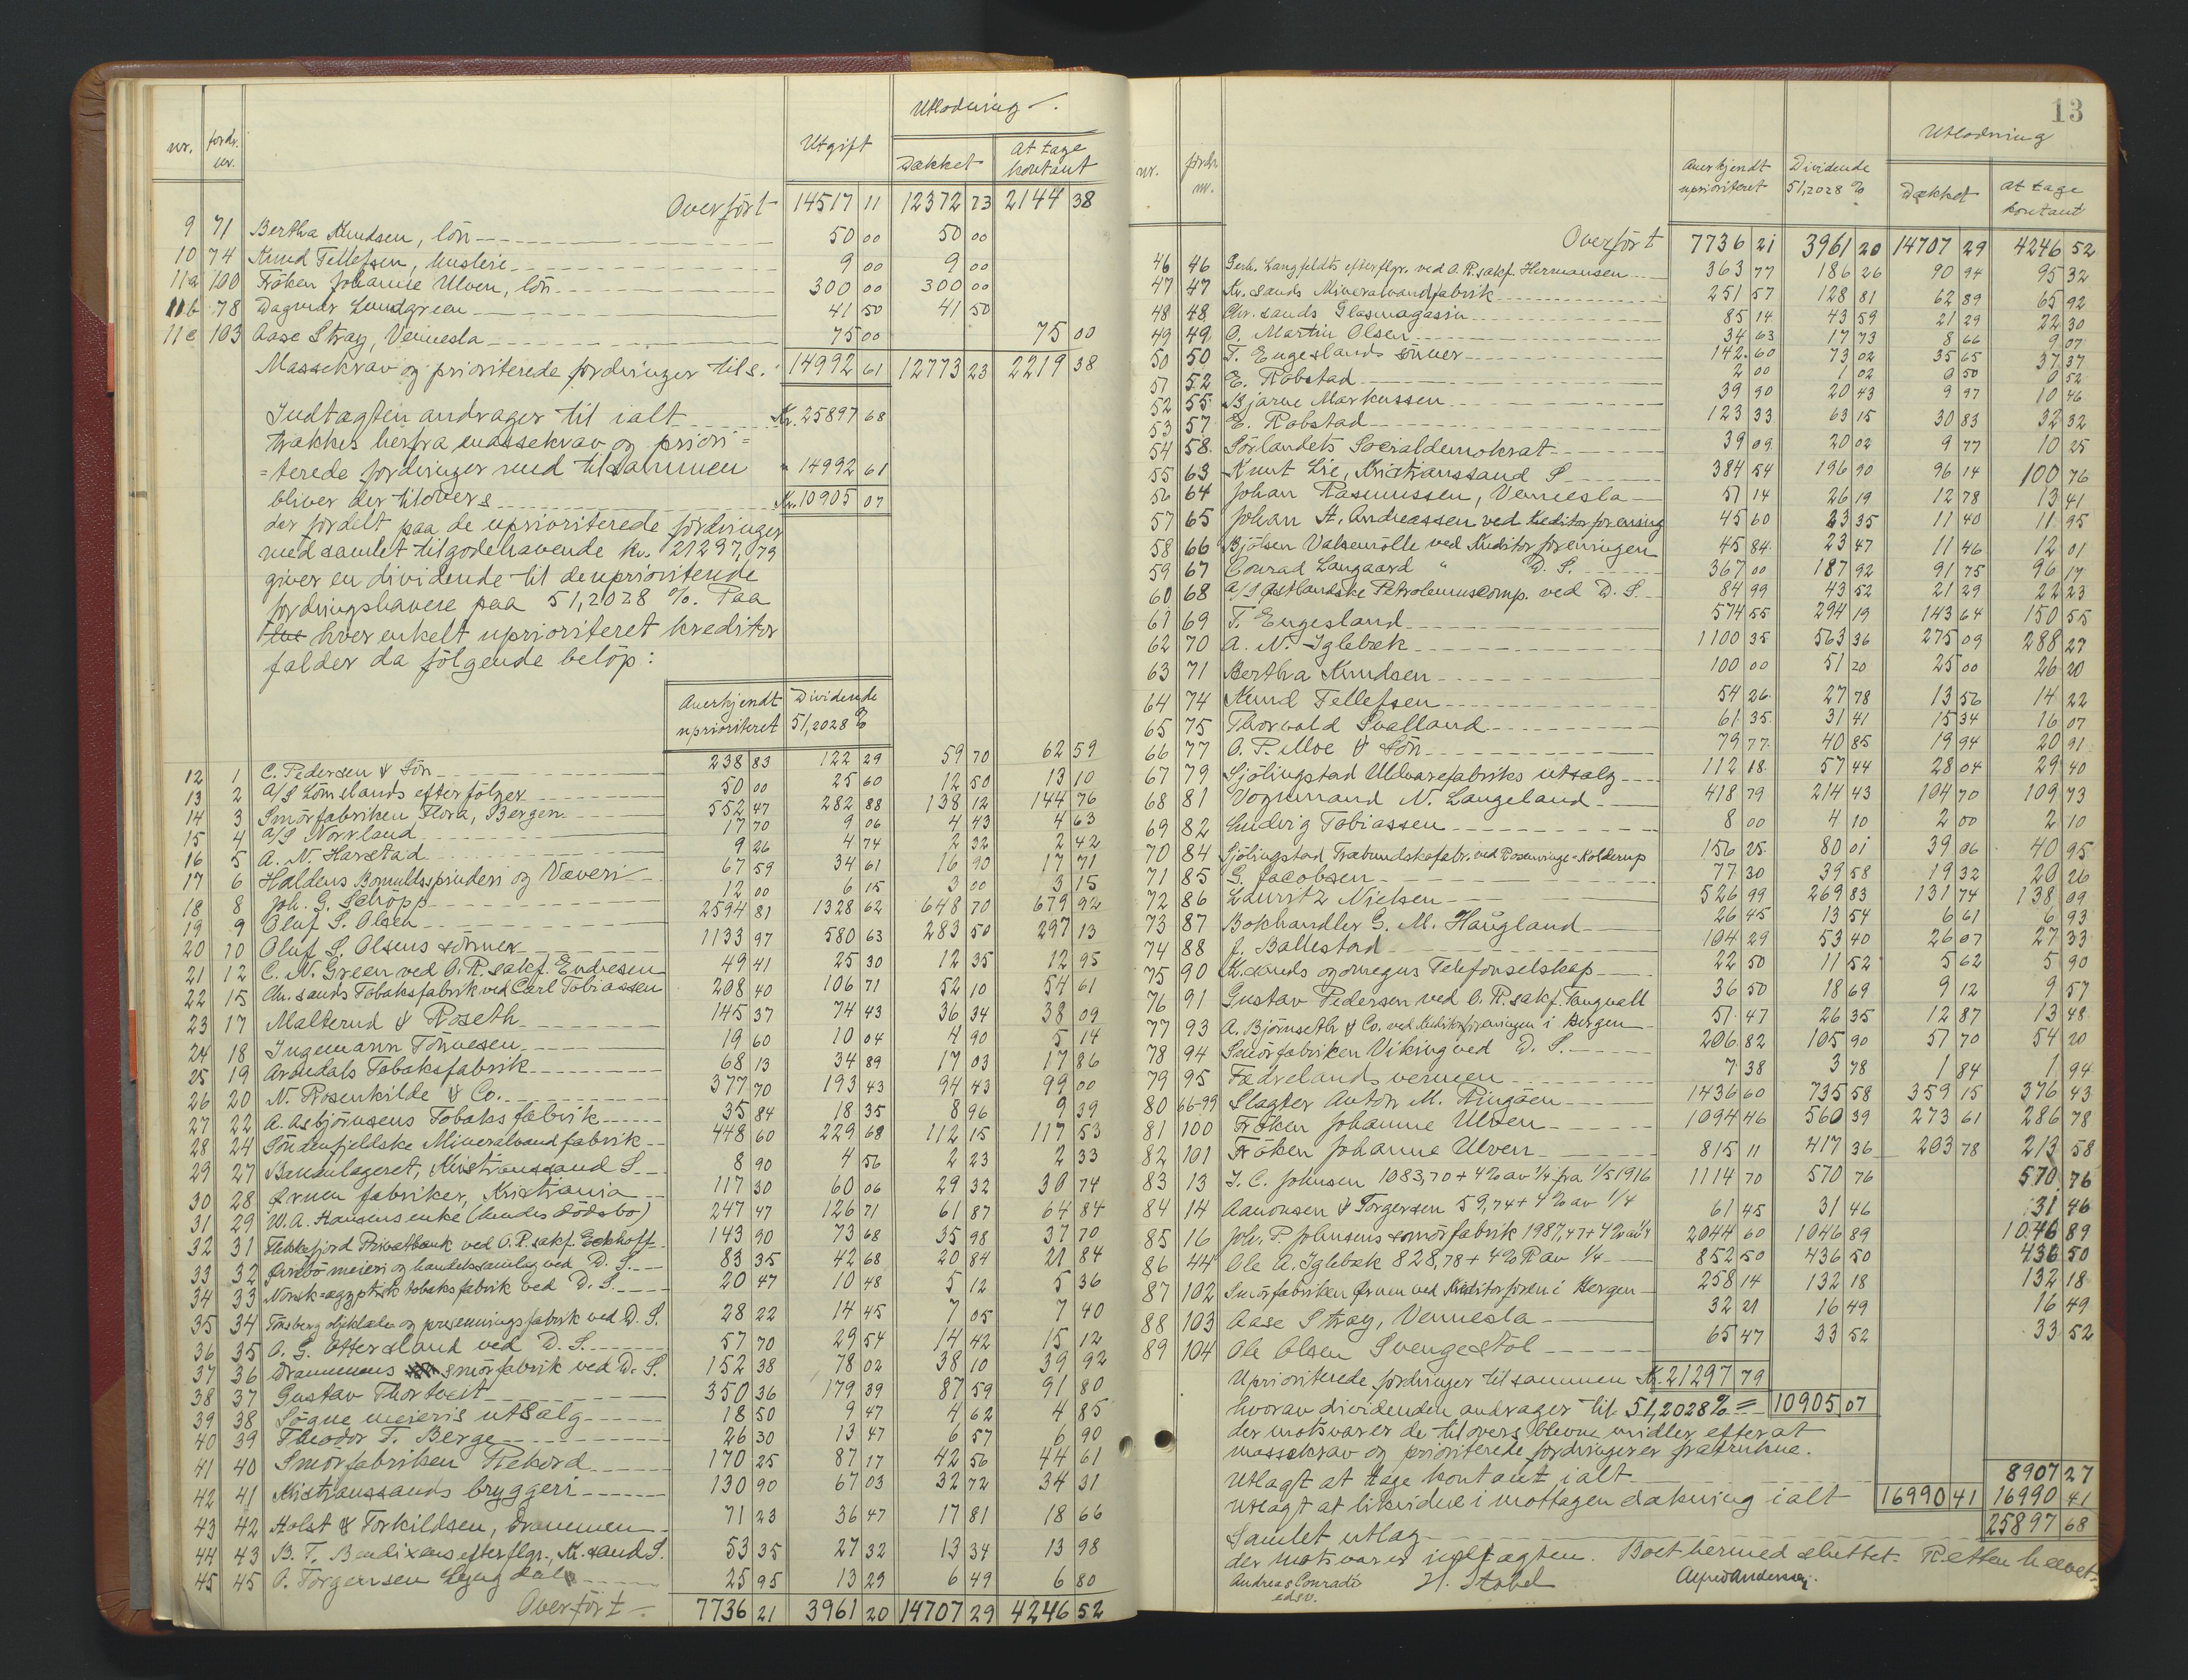 Utlodning.
nr. fordr. nr. Utgift Dækket At tage kontant
Overført 14517 11 12372 73 2144 38
9 71 Bertha Knudsen, løn 50 00 50 00
10 74 Knud Tellefsen, husleie 9 00 9 00
11a 100 Frøken Johanne Ulven, løn 300 00 300 00
11b 78 Dagmar Lundgreen 41 50 41 50
11c 103 Aase Stray, Vennesla 75 00 75 00
Massekrav og prioriterede fordringer tils. 14992 61 12773 23 2219 38
Indtægten andrager til ialt Kr. 25897 68
trækkes herfra massekrav og priori=
=terede fordringer med tilsammen " 14992 61
bliver der tilovers Kr. 10905 07
der fordelt paa de uprioriterede fordringer
med samlet tilgodehavende kr. 21297,79
giver en dividende til de uprioriterede
fordringshavere paa 51,2028 %. Paa
hver enkelt uprioriteret kreditor
falder da følgende beløp:
Anerkjendt uprioriteret Dividende 51,2028 %
12 1 C. Pedersen & Søn 238 83 122 29 59 70 62 59
13 2 A/S Lømslands efterfølger 50 00 25 60 12 50 13 10
14 3 Smørfabriken Flora, Bergen 552 47 282 88 138 12 144 76
15 4 A/S Norrland 17 70 9 06 4 43 4 63
16 5 A. N. Harstad 9 26 4 74 2 32 2 42
17 6 Haldens Bomuldsspinderi og Væveri 67 59 34 61 16 90 17 71
18 8 Joh. G. Schöpp 12 00 6 15 3 00 3 15
19 9 Oluf S. Olsen 2594 81 1328 62 648 70 679 92
20 10 Oluf S. Olsens sønner 1133 97 580 63 283 50 297 13
21 12 C. N. Green ved O. R. sakf. Endresen 49 41 25 30 12 35 12 95
22 15 Chr. sands Tobaksfabrik ved Carl Tobiassen 208 40 106 71 52 10 54 61
23 17 Malterud & Roseth 145 37 74 43 36 34 38 09
24 18 Ingemann Tønnesen 19 60 10 04 4 90 5 14
25 19 Arendals Tobaksfabrik 68 13 34 89 17 03 17 86
26 20 N. Rosenkilde & Co. 377 70 193 43 94 43 99 00
27 22 A. Asbjørnsens Tobaks fabrik 35 84 18 35 8 96 9 39
28 24 Søndenfjeldske Mineralvandfabrik 448 60 229 68 112 15 117 53
29 27 Bananlageret, Kristianssand S 8 90 4 56 2 23 2 33
30 28 Ørnen fabriker, Kristiania 117 30 60 06 29 32 30 74
31 29 W. A. Hansens enke (hendes dødsbo) 247 47 126 71 61 87 64 84
32 31 Flekkefjord Privatbank ved O. R. sakf. Eckhoff 143 90 73 68 35 98 37 70
33 32 meieri og handelssamlag ved D. S. 83 35 42 68 20 84 21 84
34 33 Norsk-ægyptisk tobaksfabrik ved D. S. 20 47 10 48 5 12 5 36
35 34 Tønsberg oljeklæde og presenningsfabrik ved D. S. 28 22 14 45 7 05 7 40
36 35 O. G. Ottersland ved D. S. 57 70 29 54 14 42 15 12
37 36 Drammens smørfabrik ved D. S. 152 38 78 02 38 10 39 92
38 37 Gustav Thortveit 350 36 179 39 87 59 91 80
39 38 Søgne meieris utsalg 18 50 9 47 4 62 4 85
40 39 Theodor T. Berge 26 30 13 47 6 57 6 90
41 40 Smørfabriken Rekord 170 25 87 17 42 56 44 61
42 41 Kristianssands bryggeri 130 90 67 03 32 72 34 31
43 42 Holst & Torkildsen, Drammen 71 23 36 47 17 81 18 66
44 43 B. T. Bendixens efterflgr., Kr. sand S. 53 35 27 32 13 34 13 98
45 45 O. Torgersen Lyngdal 25 95 13 29 6 49 6 80
Overført 7736 21 3961 20 14707 29 4246 52
13
Utlodning
nr. fordr nr. Anerkjendt uprioriteret Dividende 51,2028 % Dækket At tage kontant
Overført 7736 21 3961 20 14707 29 4246 52
46 46 Gerh. Langfeldts efterflgr. ved O. R. sakf. Hermansen 363 77 186 26 90 94 95 32
47 47 Kr. sands Mineralvandfabrik 251 57 128 81 62 89 65 92
48 48 Chr. sands Glasmagasin 85 14 43 59 21 29 22 30
49 49 O. Martin Olsen 34 63 17 73 8 66 9 07
50 50 T. Engeslands sønner 142 60 73 02 35 65 37 37
51 52 E. Robstad 2 00 1 02 0 50 0 52
52 55 Bjarne Markussen 39 90 20 43 9 97 10 46
53 57 E. Robstad 123 33 63 15 30 83 32 32
54 58 Sørlandets Socialdemokrat 39 09 20 02 9 77 10 25
55 63 Knut Lie, Kristianssand S 384 54 196 90 96 14 100 76
56 64 Johan Rasmussen, Vennesla 51 14 26 19 12 78 13 41
57 65 Johan A. Andreassen ved Kreditorforening 45 60 23 35 11 40 11 95
58 66 Bjølsen Valsemølle ved Kreditorforeningen 45 84 23 47 11 46 12 01
59 67 Conrad Langaard " D. S. 367 00 187 92 91 75 96 17
60 68 A/S Østlandske Petroleumscomp. ved D. S. 84 99 43 52 21 29 22 23
61 69 T. Engesland 574 55 294 19 143 64 150 55
62 70 A. N. Iglebæk 1100 35 563 36 275 09 288 27
63 71 Bertha Knudsen 100 00 51 20 25 00 26 20
64 74 Knud Tellefsen 54 26 27 78 13 56 14 22
65 75 Thorvald Svalland 61 35 31 41 15 34 16 07
66 77 O. P. Moe & Søn 79 77 40 85 19 94 20 91
67 79 Sjølingstad Uldvarefabriks utsalg 112 18 57 44 28 04 29 40
68 81 Vognmand N. Langeland 418 79 214 43 104 70 109 73
69 82 Ludvig Tobiassen 8 00 4 10 2 00 2 10
70 84 Sjølingstad Træbundskofabr. ved Rosenvinge-Kolderup 156 25 80 01 39 06 40 95
71 85 G. Jacobsen 77 30 39 58 19 32 20 26
72 86 Lauritz Nielsen 526 99 269 83 131 74 138 09
73 87 Bokhandler G. M. Haugland 26 45 13 54 6 61 6 93
74 88 J. Ballestad 104 29 53 40 26 07 27 33
75 90 K.sands og omegns Telefonselskap 22 50 11 52 5 62 5 90
76 91 Gustav Pedersen ved O. R. sakf. Tangvall 36 50 18 69 9 12 9 57
77 93 A. Bjørnseth & Co. ved Kreditorforeningen i Bergen 51 47 26 35 12 87 13 48
78 94 Smørfabriken Viking ved D. S. 206 82 105 90 57 70 54 20
79 95 Fædrelandsvennen 7 38 3 78 1 84 1 94
80 66-99 Slagter Anton M. Ringåen 1436 60 735 58 359 15 376 43
81 100 Frøken Johanne Ulven 1094 46 560 39 273 61 286 78
82 101 Frøken Johanne Ulven 815 11 417 36 203 78 213 58
83 13 I. C. Johnsen 1083,70 + 4% av 1/4 fra 1/5 1916 1114 70 570 76 570 76
84 14 Aanonsen & Torgersen 59,74 + 4% av 1/4 61 45 31 46 31 46
85 16 Joh. P. Johnsens smørfabrik 1987,47 + 4% av 1/4 2044 60 1046 89 1046 89
86 44 Ole A. Iglebæk 828,78 + 4% R av 1/4 852 50 436 50 436 50
87 102 Smørfabriken Ørnen ved Kreditorforen i Bergen 258 14 132 18 132 18
88 103 Aase Stray, Vennesla 32 21 16 49 16 49
89 104 Ole Olsen Svengestøl 65 47 33 52 33 52
Uprioriterede fordringer tilsammen Kr. 21297 79
hvorav dividenden andrager til 51,2028 % = 10905 07
der motsvarer de tilovers blevne midler efter at
massekrav og prioriterede fordringer er fratrukne.
Utlagt at tage kontant ialt 8907 27
Utlagt at likvidere i mottagen dækning ialt 16990 41 16990 41
Samlet utlag 25897 68
der motsvarer indtægten. Boet hermed sluttet. Retten hævet.
Andreas Conradi H. Stabel Alfred Andersen.
edsv.